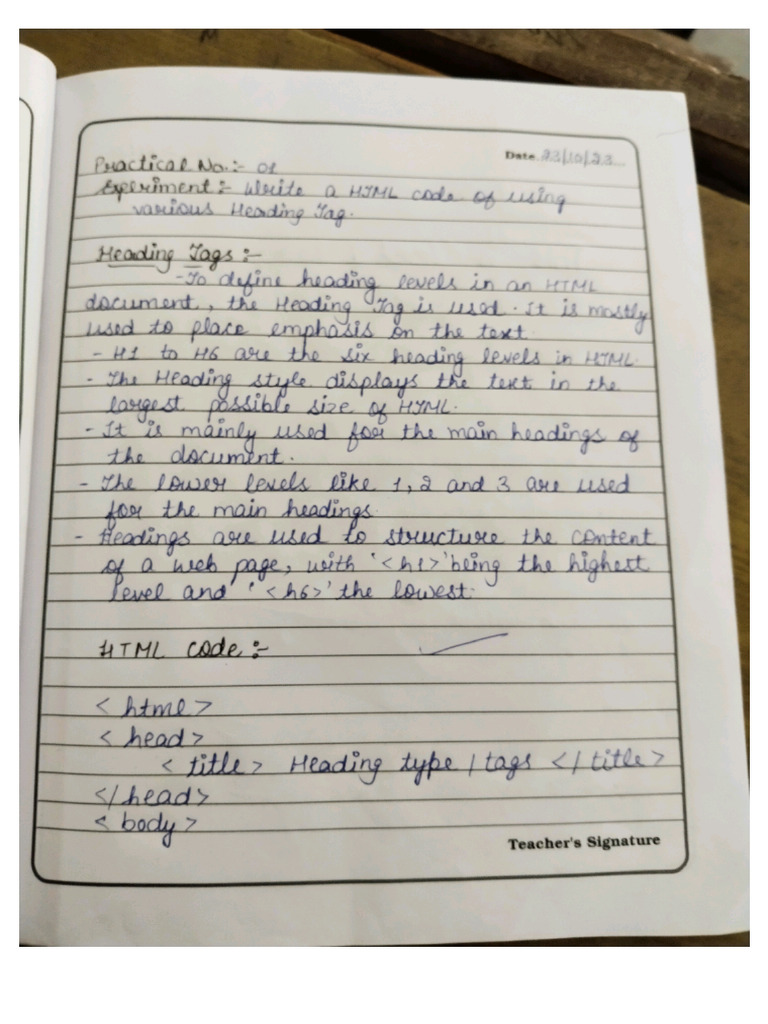 Date 23/10/23
Practical No.:- 01
Experiment:- Write a HTML code of using
various Heading Tag.
Heading Tags:-
-To define heading levels in an HTML
document, the Heading Tag is used. It is mostly
used to place emphasis on the text
- H1 to H6 are the six heading levels in HTML.
- The Heading style displays the text in the
largest possible size of HTML.
- It is mainly used for the main headings of
the document.
- The lower levels like 1, 2 and 3 are used
for the main headings.
- Headings are used to structure the content
of a web page, with '<h1>' being the highest
level and '<h6>' the lowest.
HTML code:-
<html>
<head>
<title> Heading type / tags </title>
</head>
<body>
Teacher's Signature